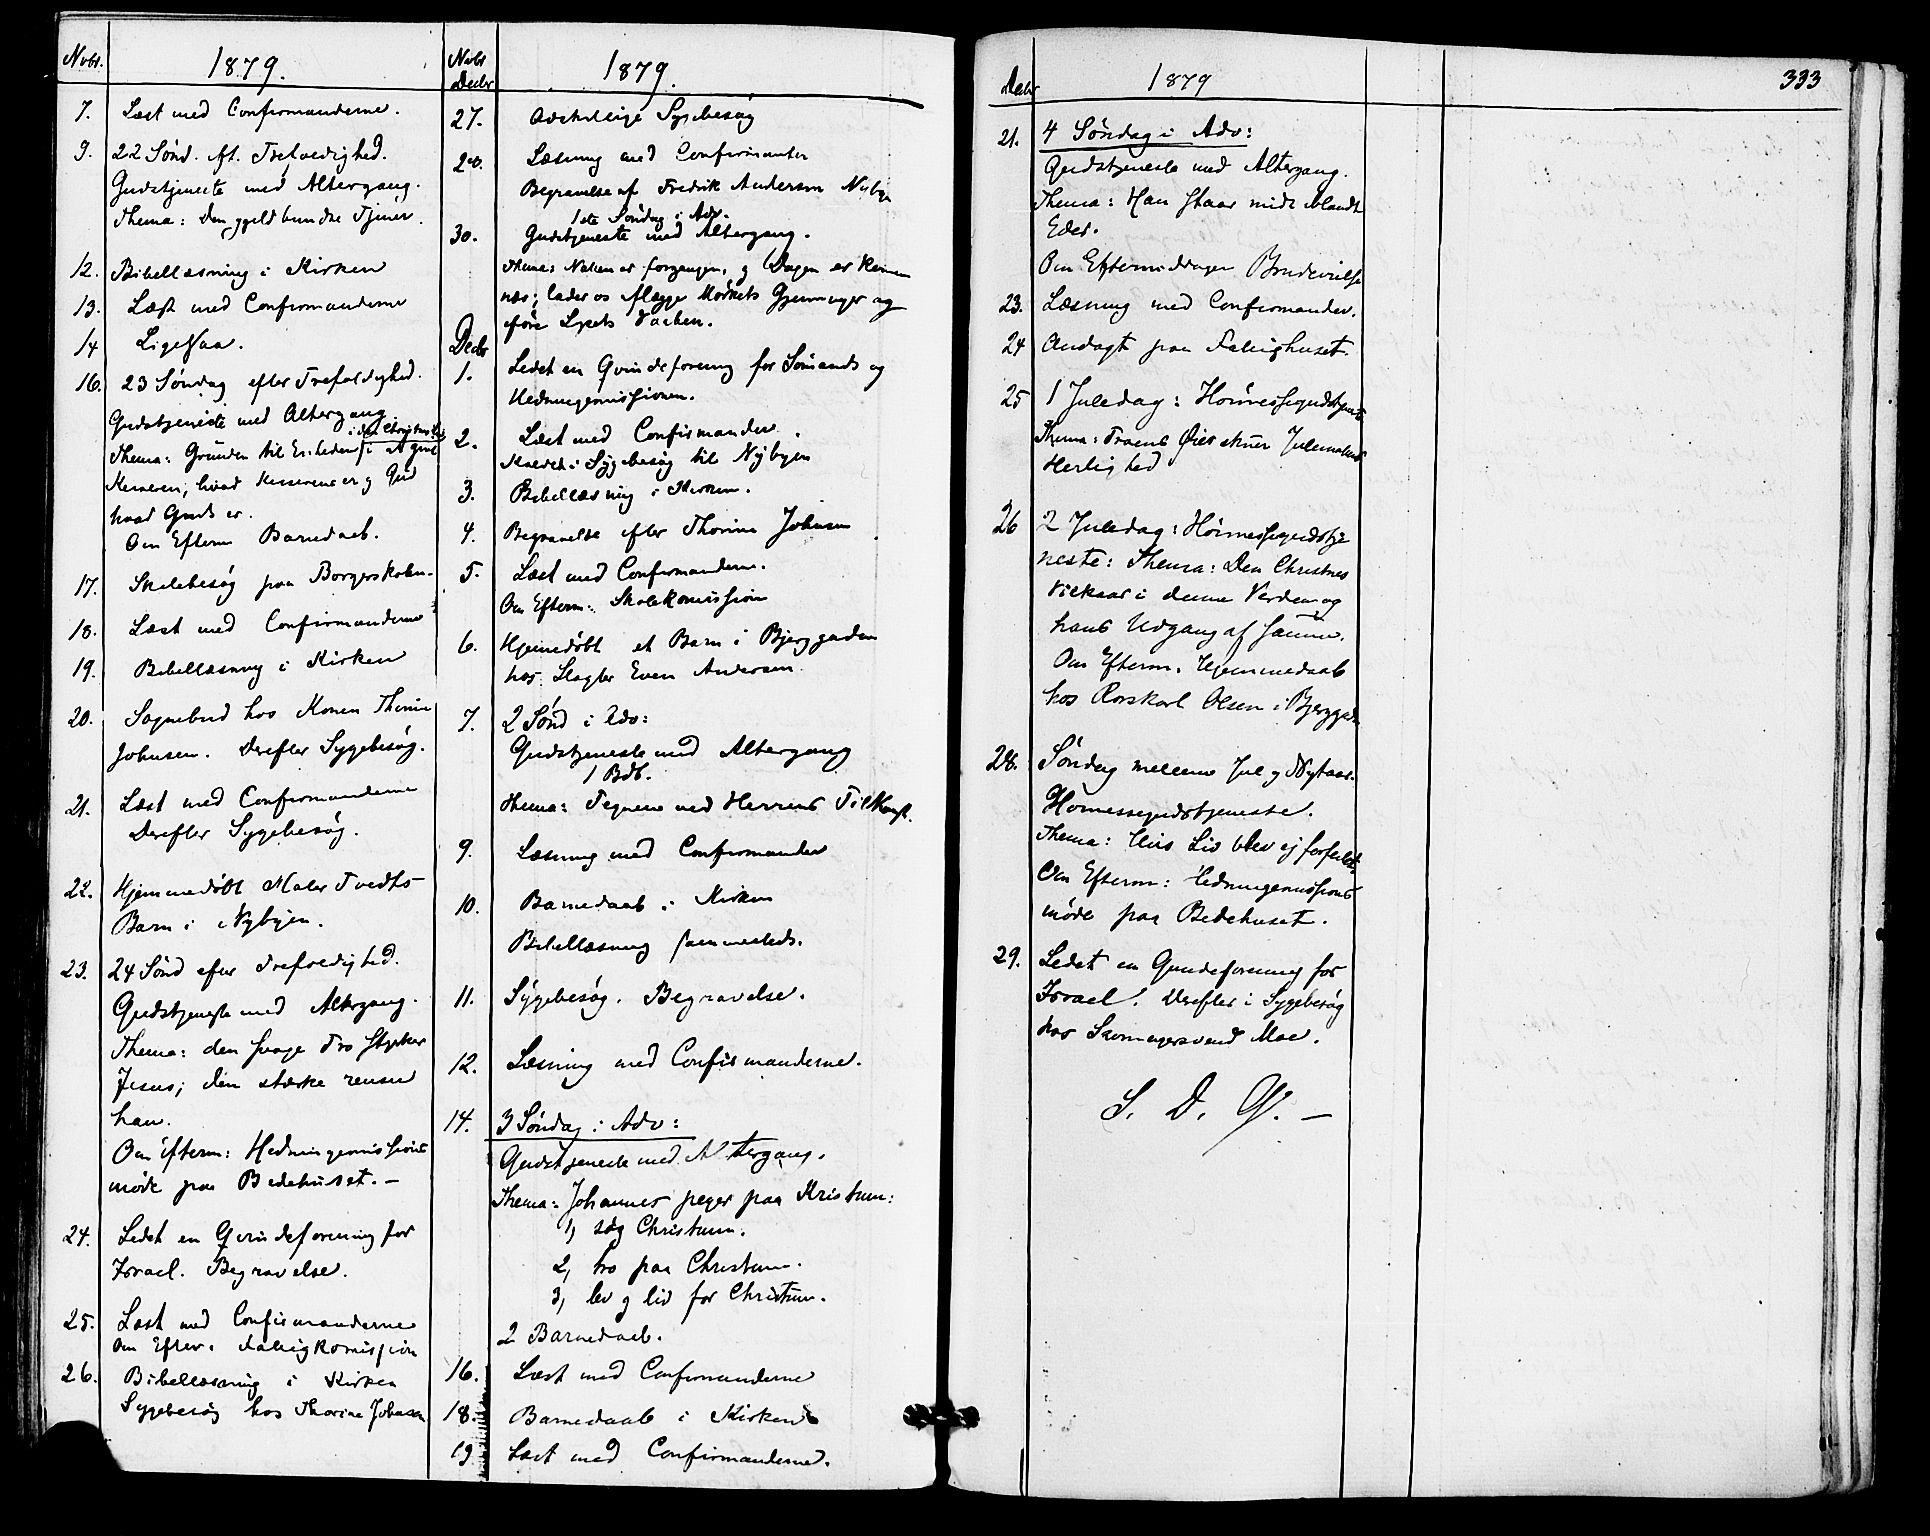 Novbr. 1879.
7. Læst med Confirmanderne.
9. 22 Sønd. ft. Trefoldighed.
Gudstjeneste med Altergang.
Thema: Den gjeldbundne Tjener.
12. Bibellæsning i Kirken
13. Læst med Confirmanderne
14 Ligesaa.
16. 23 Søndag efter Trefoldighed.
Gudstjeneste med Altergang.
Thema: Grunden til Enheden i at give
Keiseren, hvad Keiserens er, og Gud
hvad Guds er.
Om Efterm Barnedaab.
17. Skolebesøg paa Borgerskolen.
18. Læst med Confirmanderne
19. Bibellæsning i Kirken
20. Sognebud hos Konen Thorine
Johnsen. Derefter Sygebesøg.
21. Læst med Confirmanderne
Derefter Sygebesøg.
22. Hjemmedøbt Maler Tvedts
Barn i Nybyen.
23. 24 Sønd efter Trefoldighed.
Gudstjeneste med Altergang.
Thema: den svage Tro styrker
Jesus; den stærke renser
han.
Om Efterm: Hedningemissions
møde paa Bedehuset. —
24. Ledet en Qvindeforening for
Israel. Begravelse.
25. Læst med Confirmanderne
Om Efter. Fattigkomission
26. Bibellæsning i Kirken
Sygebesøg hos Thorine Johnsen
Novbr
Decbr 1879.
27. Adskillige Sygebesøg
28. Læsning med Confirmanter
Begravelse af Fredrik Andersen Nybyen
1ste Søndag i Adv.
30. Gudstjeneste med Altergang.
Thema: Natten er forgangen, og Dagen er kommen
nær; lader os aflægge Mørkets Gjerninger og
iføre Lysets Vaaben.
Decbr
1. Ledet en Qvindeforening for Sømands og
Hedningemissionen.
2. Læst med Confirmander.
Kaldet i Sygebesøg til Nybyen
3. Bibellæsning i Kirken.
4. Begravelse efter Thorine Johnsen
5. Læst med Confirmanderne.
Om Efterm: Skolekomission
6. Hjemmedøbt et Barn i Bjerggaden
hos Slagter Even Andersen.
7. 2 Sønd i Adv:
Gudstjeneste med Altergang
1 Bdb.
Thema: Tegnene ved Herrens Tilkomst.
9. Læsning med Confirmander
10. Barnedaab i Kirken
Bibellæsning sammesteds.
11. Sygebesøg. Begravelse.
12. Læsning med Confirmanderne.
14. 3 Søndag i Adv:
Gudstjeneste med Altergang.
Thema: Johannes peger paa Kristum:
1, søg Christum.
2, tro paa Christum.
3, lev og lid for Christum.
2 Barnedaab.
16. Læst med Confirmanderne
18. Barnedaab i Kirken
19 Læst med Confirmanderne.
Decbr 1879 333
21. 4 Søndag i Adv:
Gudstjeneste med Altergang.
Thema: Han staar midt iblandt
Eder.
Om Eftermiddagen Brudevielse
23. Læsning med Confirmander.
24 Andagt paa Fattighuset.
25 1 Juledag: Høimessegudstjeneste
Thema: Troens Øie skuer Julenattens
Herlighed
26 2 Juledag: Høimessegudstje
neste: Thema: Den Christnes
Vilkaar i denne Verden og
hans Udgang af samme.
Om Efterm. Hjemmedaab
hos Rorskarl Olsen i Bjerggaden
28. Søndag mellem Jul og Nytaar.
Høimessegudstjeneste.
Thema: Hvis Liv blev ej forfeilet
Om Efterm: Hedningemissions
møde paa Bedehuset.
29. Ledet en Qvindeforening for
Israel. Derefter i Sygebesøg
hos Skomagersvend Moe.
S. D. G. —